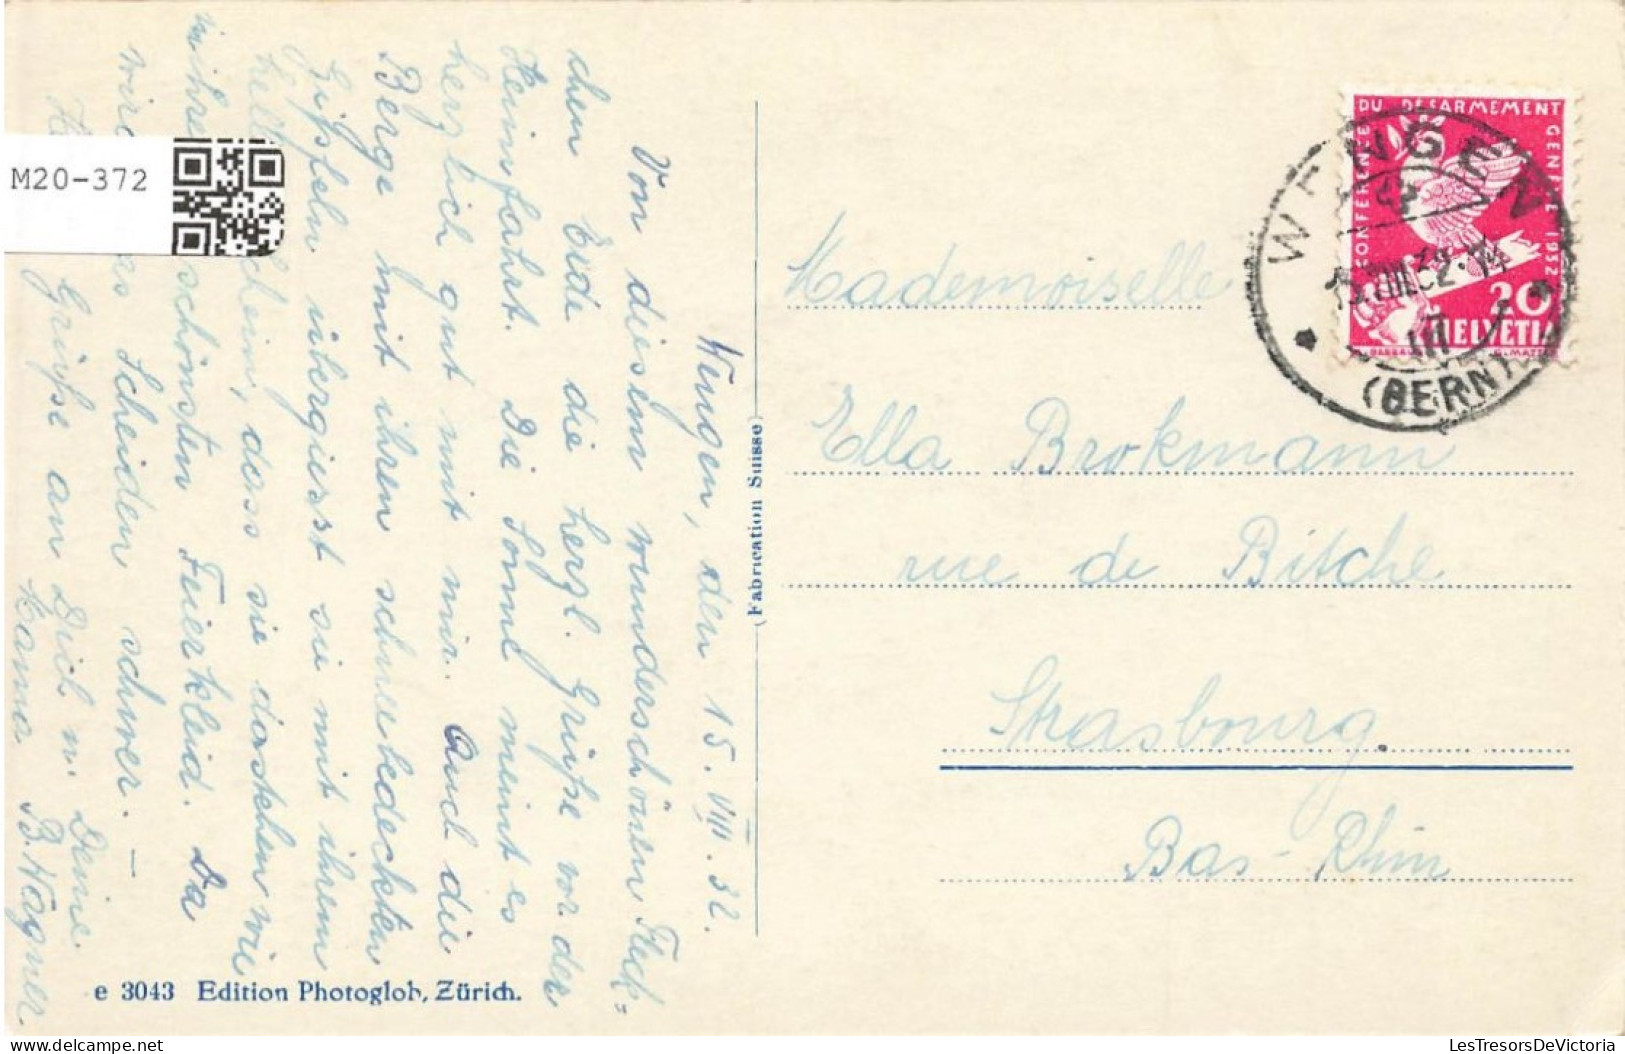 Wengen, den 15. VIII. 32.
Von diesem wunderschönen Fleck=
chen Erde die herzl. Grüße vor der
Heimfahrt. Die Sonne meint es
herzlich gut mit mir. Auch die
Berge mit ihren schneebedeckten
Gipfeln übergiesst sie mit ihrem
hell schein, dass sie dastehen wie
in ihrem schönsten Feierkleid. Da
wird das Scheiden schwer. –
Grüße an Dich u. Deine
Hanna B. Wagner.
M20-372
e 3043 Edition Photoglob, Zürich.
(Fabrication Suisse)
CONFERENCE DU DESARMEMENT GENEVE 1932
20
HELVETIA
WENGEN
15.VIII.32.
(BERN)
Mademoiselle
Ella Brokmann
rue de Bitche
Strasbourg.
Bas-Rhin
LesTresorsDeVictoria.com